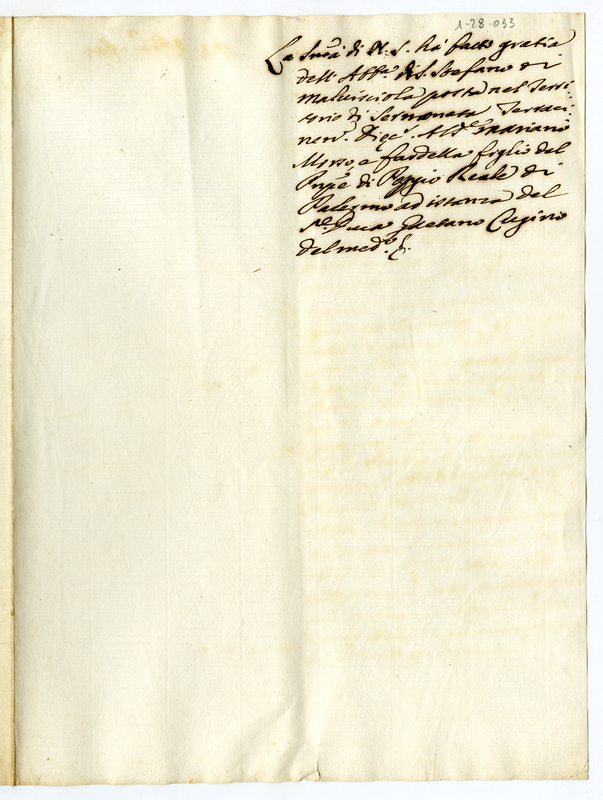 1-28-053
La Sua.tà di N. S. hà fatto gratia
dell' Abb.a di S. Stefano di
Malvisciola posta nel Terri-
torio di Sermoneta Terraci-
nen. Dioc. Ald.e Mariano
Morso, e fardella figlio del
Pnpe di Poggio Reale di
Palermo ad istanza del
S.r Duca Gaetano Cugino
del med.o